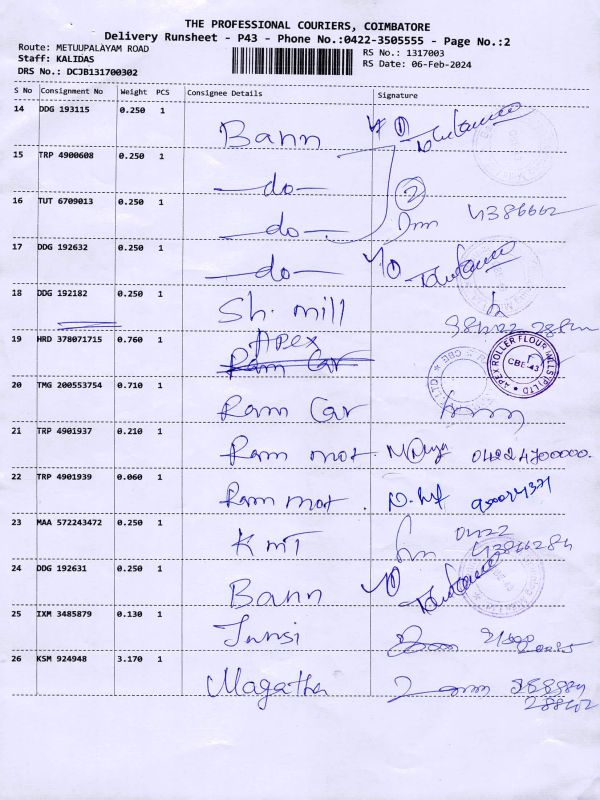 THE PROFESSIONAL COURIERS, COIMBATORE
Delivery Runsheet - P43 - Phone No.:0422-3505555 - Page No.:2
Route: METUUPALAYAM ROAD
RS No.: 1317003
Staff: KALIDAS
RS Date: 06-Feb-2024
DRS No.: DCJB131700302
S No Consignment No Weight PCS Consignee Details Signature
14 DDG 193115 0.250 1 Bann 1
15 TRP 4900608 0.250 1 -do- 2
16 TUT 6709013 0.250 1 -do- 4386662
17 DDG 192632 0.250 1 -do- 1
18 DDG 192182 0.250 1 Sh. mill
19 HRD 378071715 0.760 1 Apex
Ram Car
APEX ROLLER FLOUR MILLS (P) LTD
CBE-43
20 TMG 200553754 0.710 1 Ram Car
21 TRP 4901937 0.210 1 Ram mot. 04224700000.
22 TRP 4901939 0.060 1 Ram mot.
23 MAA 572243472 0.250 1 KMT 0422
24 DDG 192631 0.250 1 Bann
25 IXM 3485879 0.130 1 Junsi
26 KSM 924948 3.170 1 Magatha